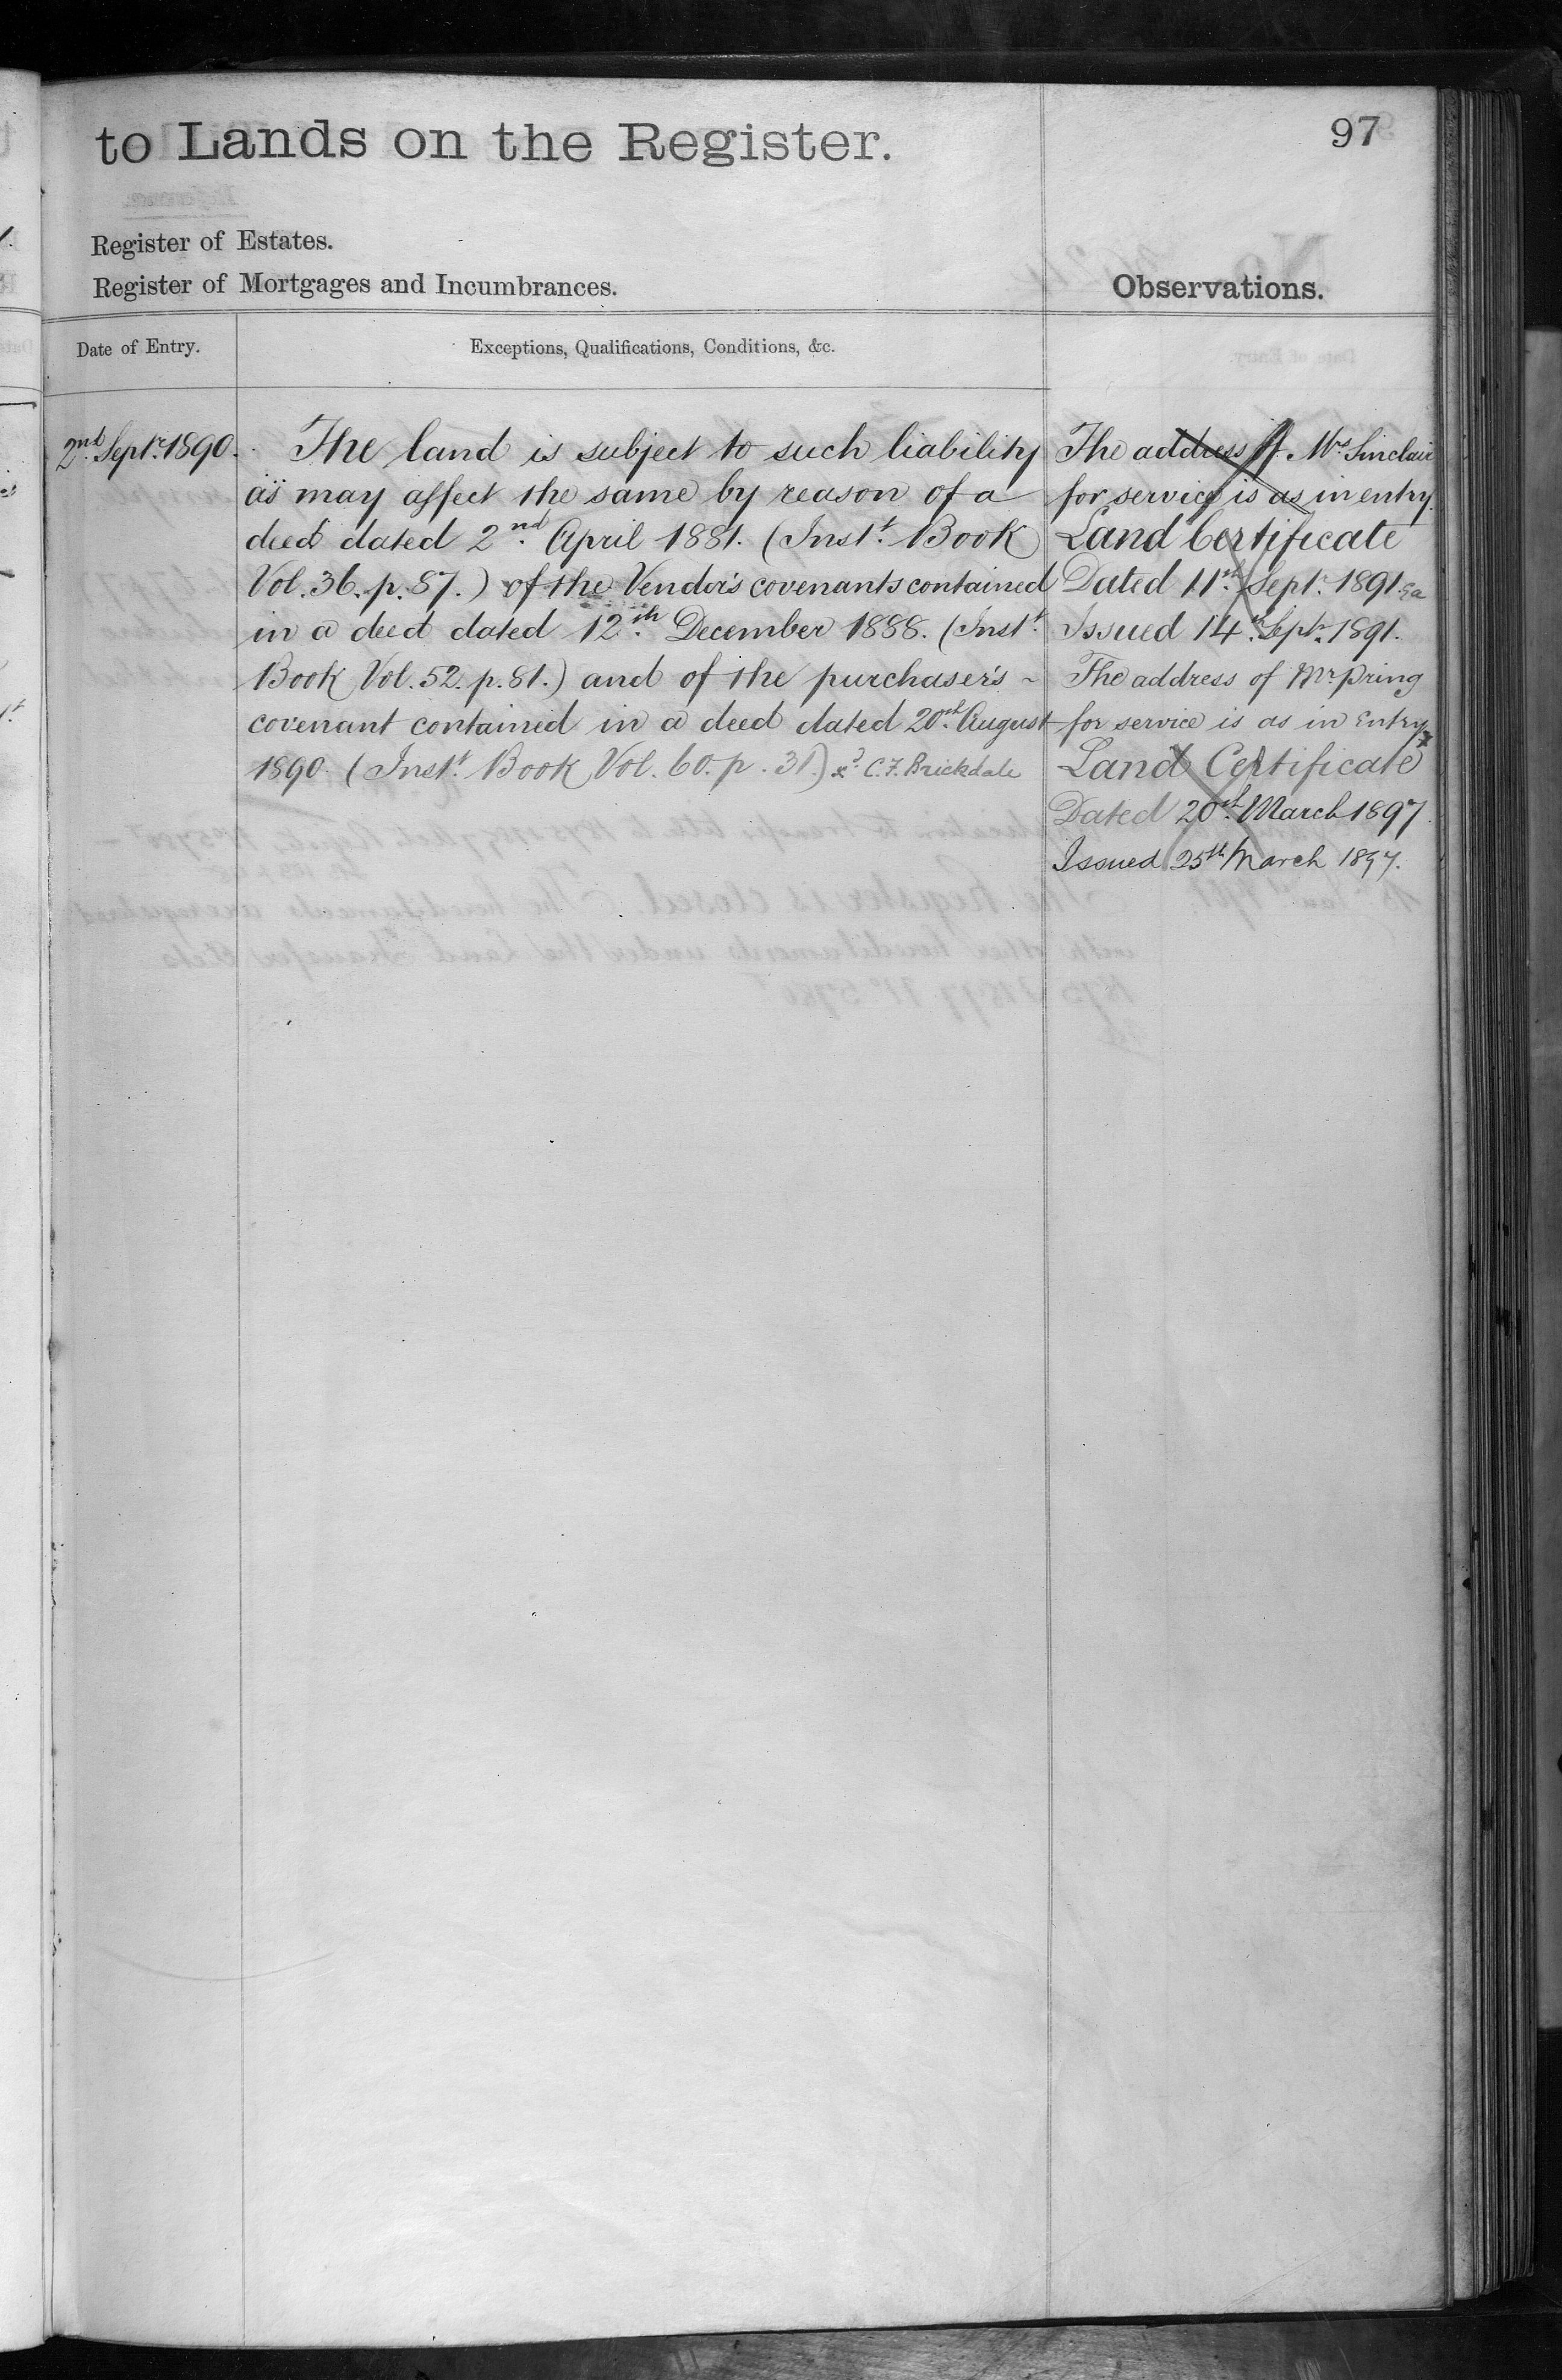 to Lands on the Register.
97
Register of Estates.
Register of Mortgages and Incumbrances.
Observations.
Date of Entry.
Exceptions, Qualifications, Conditions, &c.
2nd. Septr. 1890.
The land is subject to such liability
as may affect the same by reason of a
deed dated 2nd. April 1881. (Instt. Book
Vol. 36. p. 87.) of the Vendor's covenants contained
in a deed dated 12th. December 1888. (Instt.
Book Vol. 52. p. 81.) and of the purchaser's ~
covenant contained in a deed dated 20th. August
1890. (Instt. Book Vol. 60. p. 31.) C. F. Brickdale
The address of Mrs Sinclair
for service is as in entry.
Land Certificate
Dated 11th. Septr. 1891.
Issued 14th. Septr. 1891.
The address of Mr. Pring
for service is as in Entry
Land Certificate
Dated 20th. March 1897.
Issued 25th March 1897.